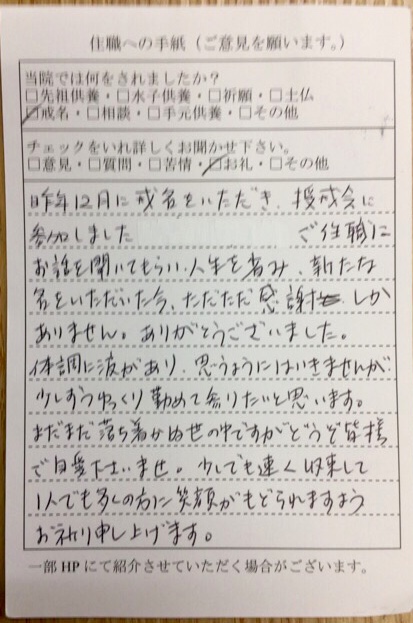 住職への手紙（ご意見を願います。）
当院では何をされましたか？
□先祖供養・□水子供養・□祈願・□土仏
☑戒名・□相談・□手元供養・□その他
チェックをいれ詳しくお聞かせ下さい。
□意見・□質問・□苦情・☑お礼・□その他
昨年12月に戒名をいただき、授戒会に
参加しました ご住職に
お話を聞いてもらい、人生を省み、新たな
名をいただいた今、ただただ感謝しか
ありません。ありがとうございました。
体調に波があり、思うようにはいきませんが
少しずつゆっくり勤めて参りたいと思います。
まだまだ落ち着かぬ世の中ですがどうぞ皆様
ご自愛下さいませ。少しでも速く収束して
1人でも多くの方に笑顔がもどられますよう
お祈り申し上げます。
一部HPにて紹介させていただく場合がございます。